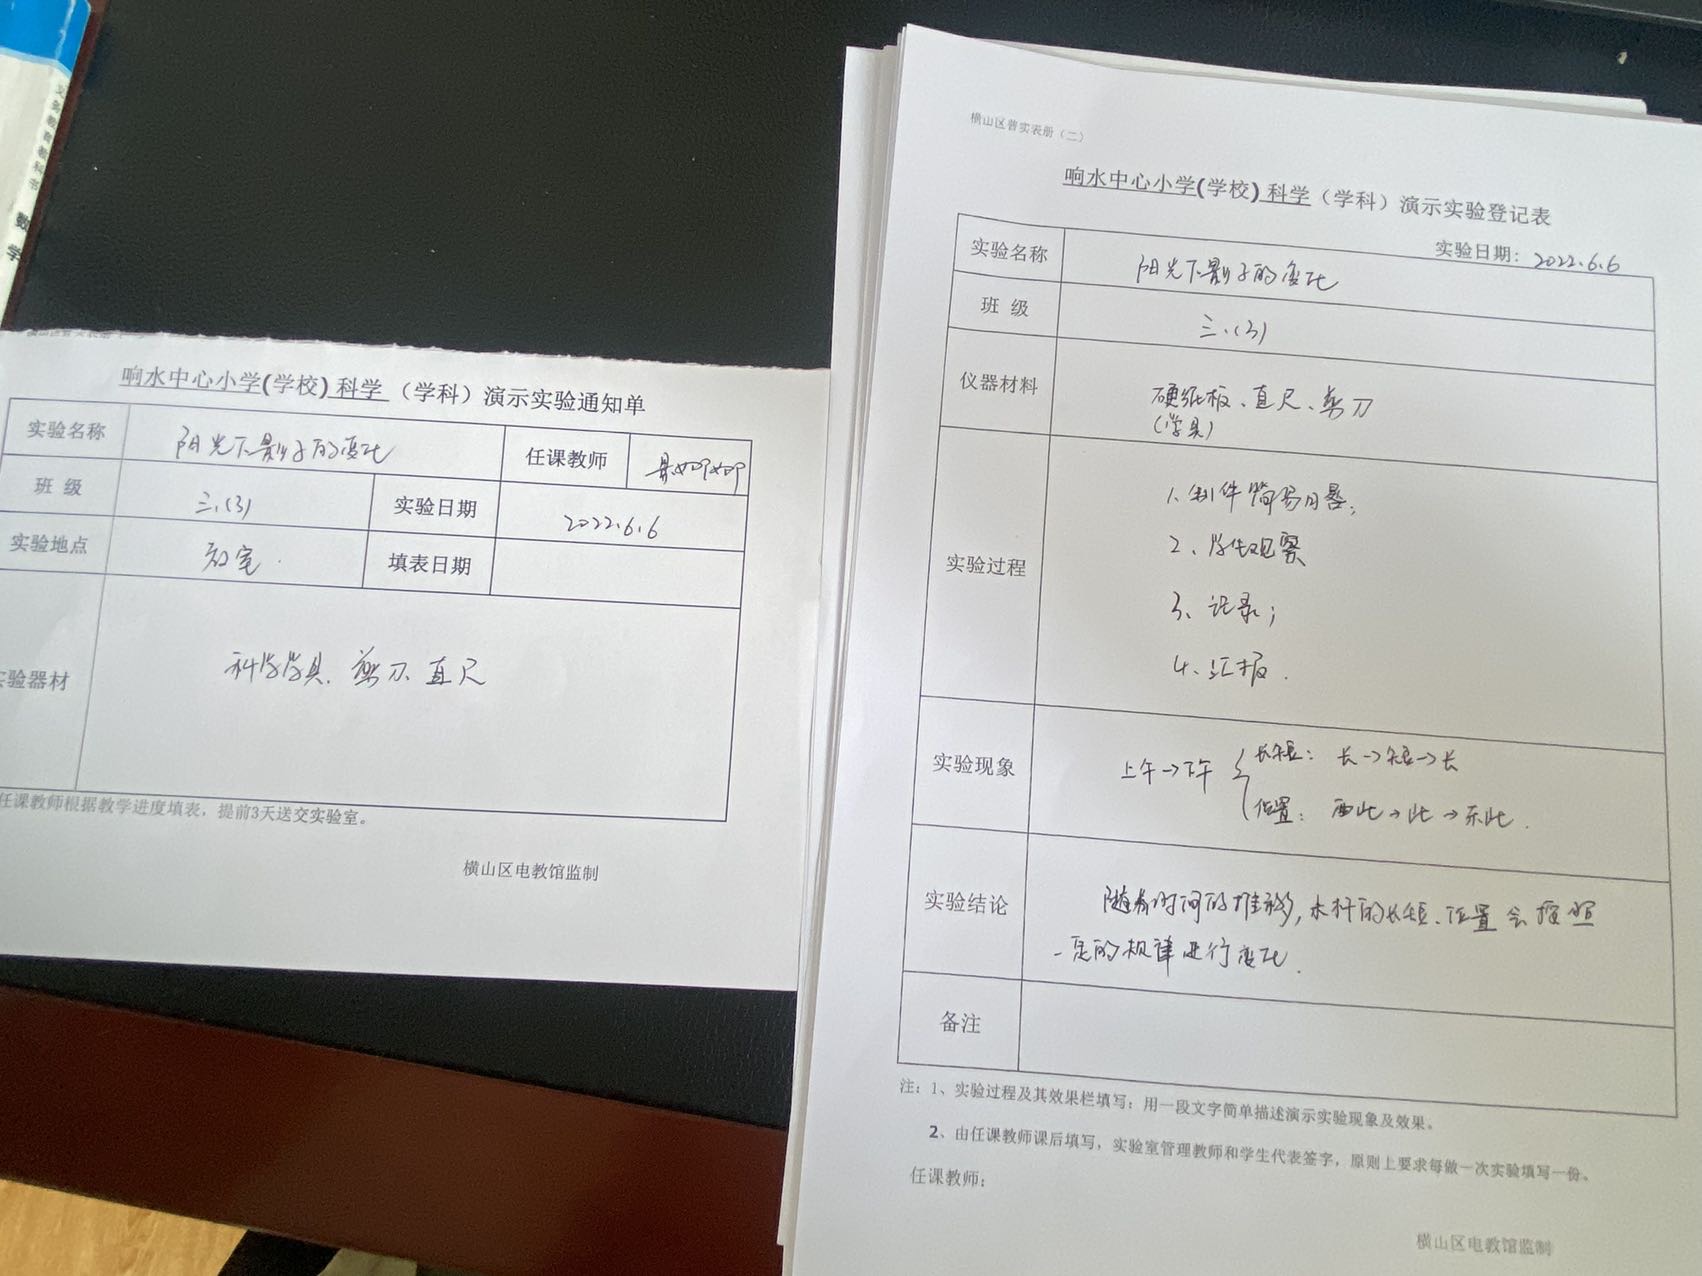 义务教育教科书
数学
响水中心小学(学校) 科学 (学科) 演示实验通知单
实验名称 阳光下影子的变化 任课教师
班 级 三.(3) 实验日期 2022.6.6
实验地点 教室. 填表日期
实验器材 科学学具、剪刀、直尺
任课教师根据教学进度填表，提前3天送交实验室。
横山区电教馆监制
横山区普实表册（二）
响水中心小学(学校) 科学（学科）演示实验登记表
实验日期：2022.6.6
实验名称 阳光下影子的变化
班 级 三.(3)
仪器材料 硬纸板、直尺、剪刀
(学具)
实验过程
1、制作简易日晷；
2、学生观察
3、记录；
4、汇报.
实验现象 上午→下午
长短：长→短→长
位置：西北→北→东北.
实验结论 随着时间的推移，木杆的长短、位置会按照
一定的规律进行变化.
备注
注：1、实验过程及其效果栏填写：用一段文字简单描述演示实验现象及效果。
2、由任课教师课后填写，实验室管理教师和学生代表签字，原则上要求每做一次实验填写一份。
任课教师：
横山区电教馆监制